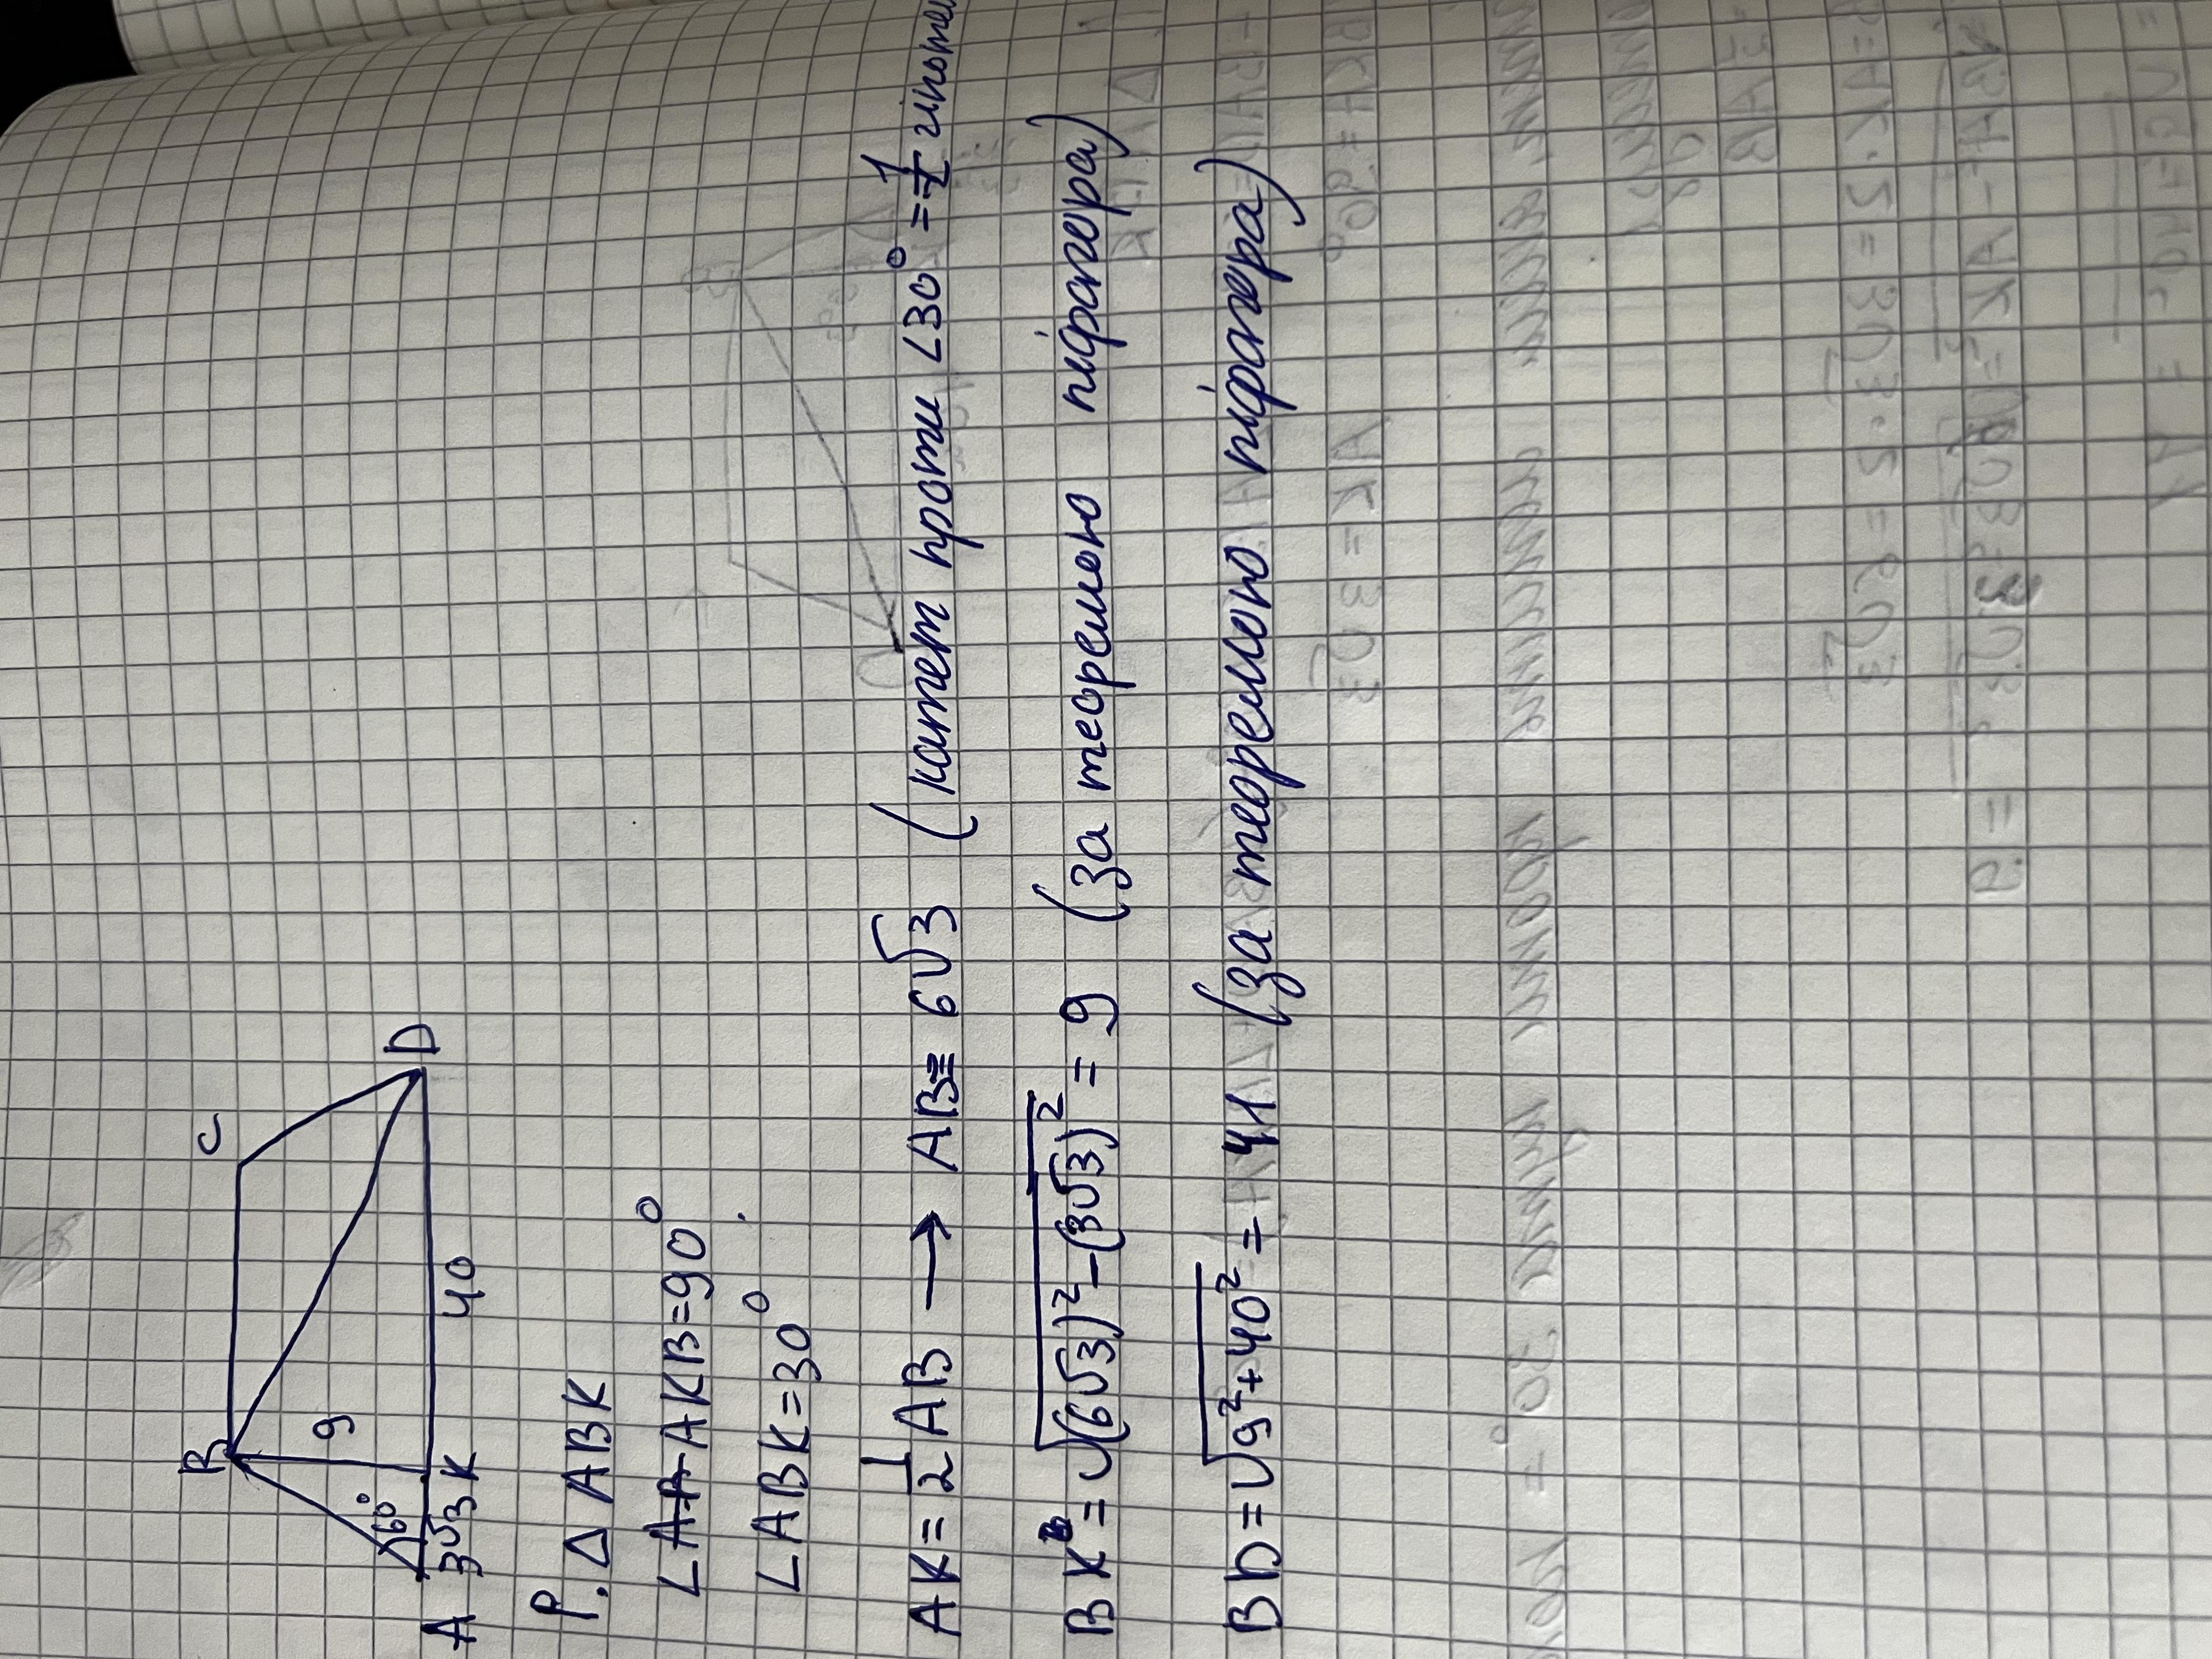 B C
9
60°
A 3√3 K 40 D
Р. △ ABK
∠AKB=90°
∠ABK=30°
AK = 1/2 AB → AB = 6√3 (катет проти ∠30° = 1/2
BK = √(6√3)² - (3√3)² = 9 (за теоремою піфагора)
BD = √9² + 40² = 41 (за теоремою піфагора)